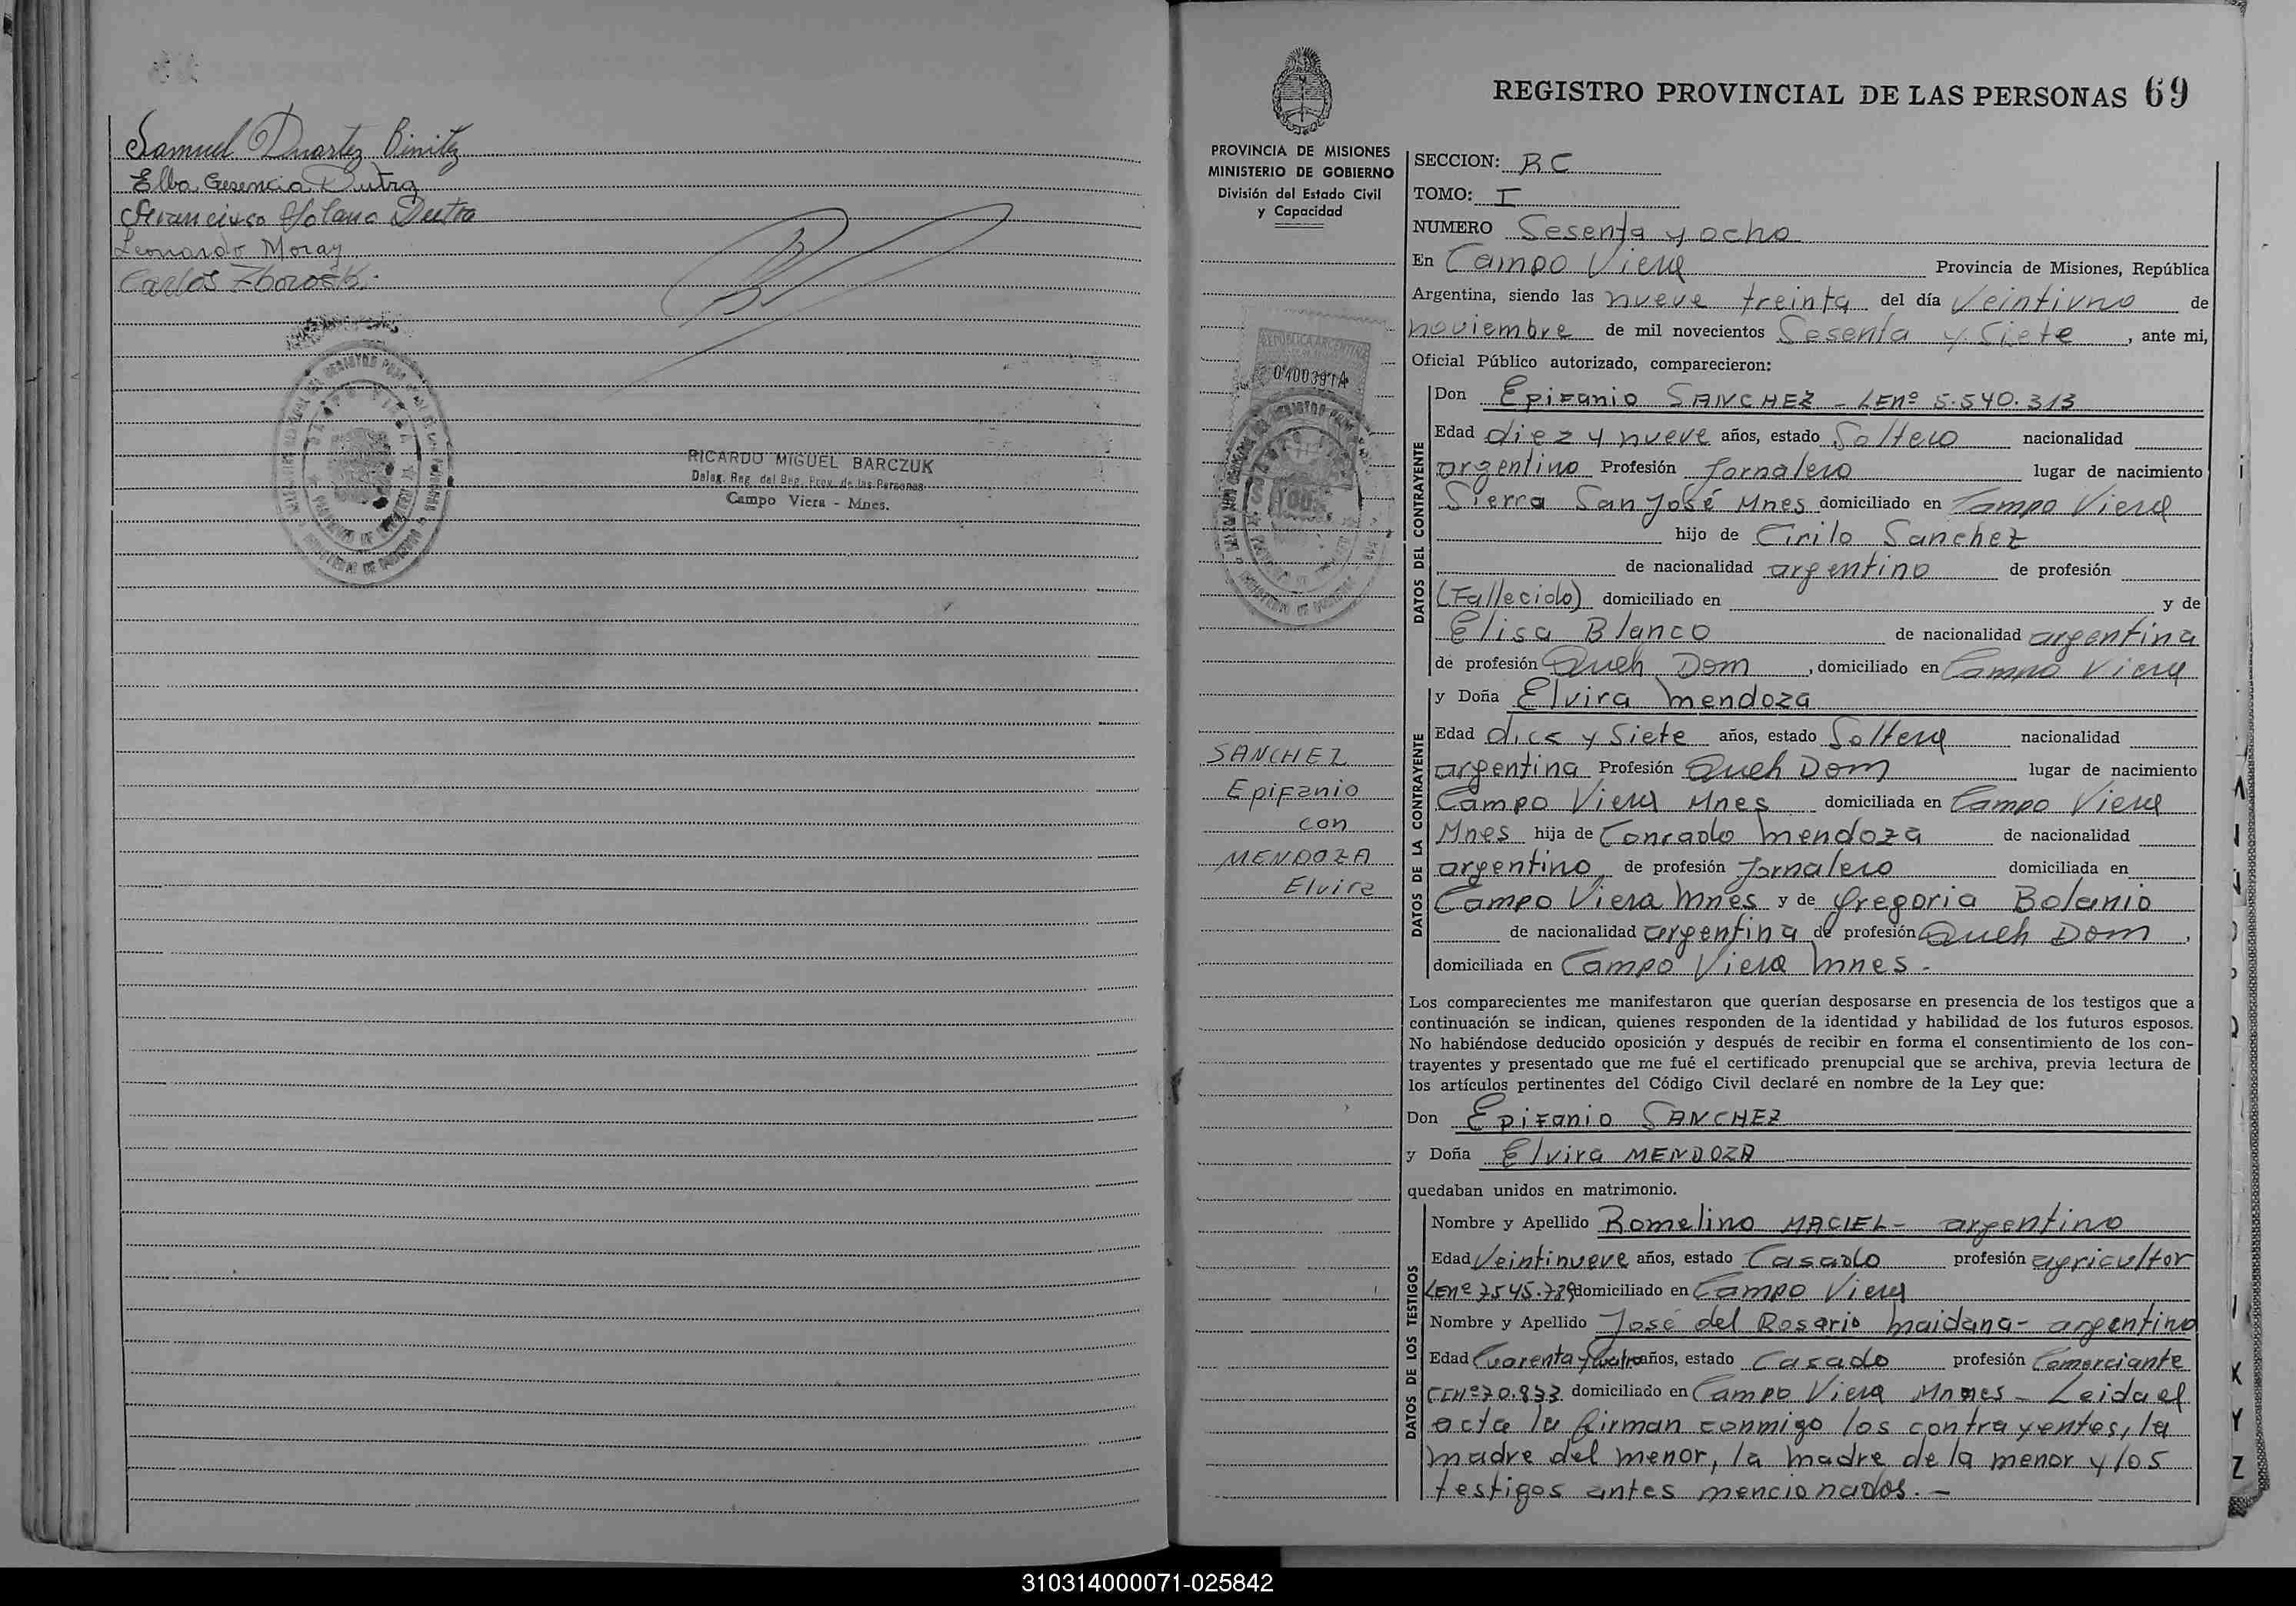 Samuel Duartez Binitez
Elba Gresencia Dutra
Francisco Solano Dutra
Leonardo Moray
Carlos Zborosk.
RICARDO MIGUEL BARCZUK
Deleg. Reg. del Reg. Prov. de las Personas
Campo Viera - Mnes.
REGISTRO PROVINCIAL DE LAS PERSONAS 69
PROVINCIA DE MISIONES
MINISTERIO DE GOBIERNO
División del Estado Civil
y Capacidad
040039 1A
SANCHEZ
Epifanio
con
MENDOZA
Elvira
SECCION: RC
TOMO: I
NUMERO Sesenta y ocho
En Campo Viera Provincia de Misiones, República
Argentina, siendo las nueve treinta del día Veintiuno de
noviembre de mil novecientos Sesenta y Siete, ante mi,
Oficial Público autorizado, comparecieron:
DATOS DEL CONTRAYENTE
Don Epifanio SANCHEZ - LEnº 5.540.313
Edad diez y nueve años, estado Soltero nacionalidad
argentino Profesión Jornalero lugar de nacimiento
Sierra San José Mnes domiciliado en Campo Viera
hijo de Cirilo Sanchez
de nacionalidad argentino de profesión
(Fallecido) domiciliado en y de
Elisa Blanco de nacionalidad argentina
de profesión Queh Dom, domiciliado en Campo Viera
DATOS DE LA CONTRAYENTE
y Doña Elvira Mendoza
Edad diez y Siete años, estado Soltera nacionalidad
argentina Profesión Queh Dom lugar de nacimiento
Campo Viera Mnes domiciliada en Campo Viera
Mnes hija de Conrado Mendoza de nacionalidad
argentino, de profesión Jornalero domiciliada en
Campo Viera Mnes y de Gregoria Bolanio
de nacionalidad argentina de profesión Queh Dom,
domiciliada en Campo Viera Mnes.
Los comparecientes me manifestaron que querían desposarse en presencia de los testigos que a
continuación se indican, quienes responden de la identidad y habilidad de los futuros esposos.
No habiéndose deducido oposición y después de recibir en forma el consentimiento de los con-
trayentes y presentado que me fué el certificado prenupcial que se archiva, previa lectura de
los artículos pertinentes del Código Civil declaré en nombre de la Ley que:
Don Epifanio SANCHEZ
y Doña Elvira MENDOZA
quedaban unidos en matrimonio.
DATOS DE LOS TESTIGOS
Nombre y Apellido Romelino MACIEL- argentino
Edad Veintinueve años, estado Casado profesión agricultor
LEnº 7545.789 domiciliado en Campo Viera
Nombre y Apellido José del Rosario Maidana- argentino
Edad Cuarenta y Cuatro años, estado Casado profesión Comerciante
CInº 70.833 domiciliado en Campo Viera Mnnes - Leida el
acta la firman conmigo los contrayentes, la
madre del menor, la madre de la menor y los
testigos antes mencionados. -
310314000071-025842